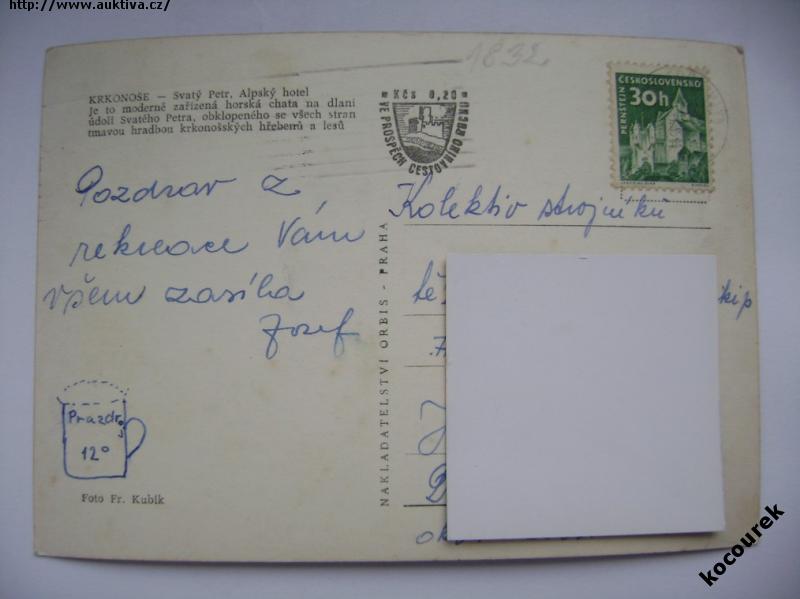 http://www.auktiva.cz/
1832
KRKONOŠE — Svatý Petr, Alpský hotel
Je to moderně zařízená horská chata na dlani
údolí Svatého Petra, obklopeného se všech stran
tmavou hradbou krkonošských hřebenů a lesů
Kčs 0,20
VE PROSPĚCH CESTOVNÍHO RUCHU
ČESKOSLOVENSKO
PERNŠTEJN
30h
Pozdrav z
rekreace Vám
všem zasílá
Jozef
Prazdroj
12°
Foto Fr. Kubík
NAKLADATELSTVÍ ORBIS - PRAHA
Kolektiv strojníků
kocourek